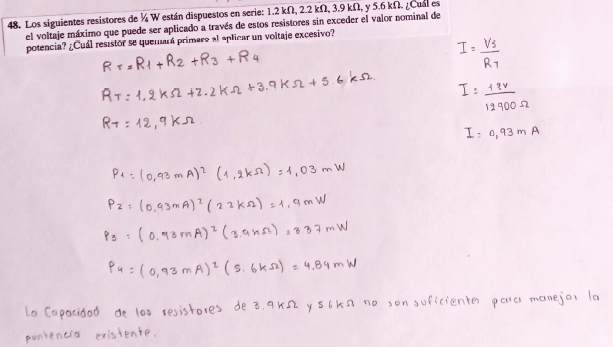 48. Los siguientes resistores de ¼ W están dispuestos en serie: 1.2 kΩ, 2.2 kΩ, 3.9 kΩ, y 5.6 kΩ. ¿Cuál es
el voltaje máximo que puede ser aplicado a través de estos resistores sin exceder el valor nominal de
potencia? ¿Cuál resistor se quemará primero al aplicar un voltaje excesivo?
RT = R1 + R2 + R3 + R4
RT = 1,2 kΩ + 2.2 kΩ + 3.9 kΩ + 5.6 kΩ.
RT = 12,9 kΩ
I = Vs / RT
I = 12V / 12900 Ω
I = 0,93 mA
P1 = (0,93 mA)² (1,2kΩ) = 1,03 mW
P2 = (0,93mA)² (22kΩ) = 1,9 mW
P3 = (0,93mA)² (3.9kΩ) = 337 mW
P4 = (0,93 mA)² (5.6kΩ) = 4,84 mW
La Capacidad de los resistores de 3.9KΩ y 56KΩ no son suficientes para manejar la
puntencia existente.